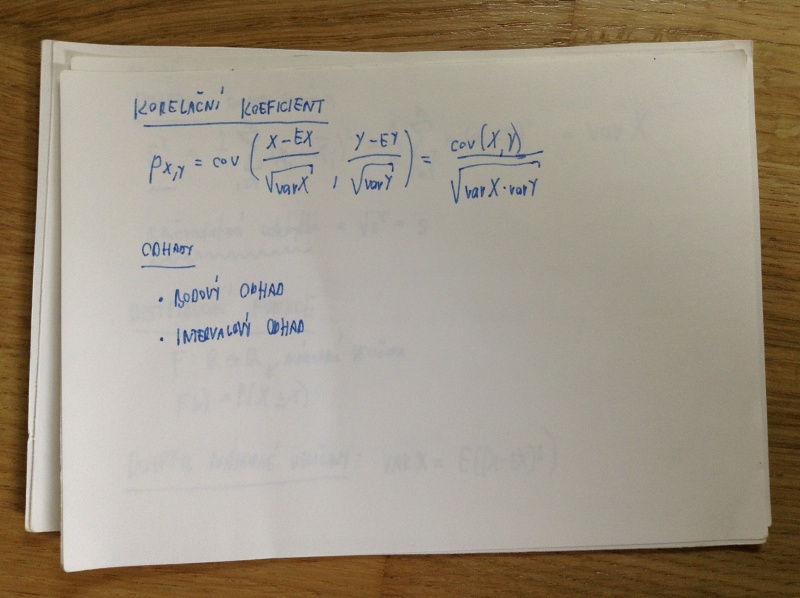 KORELAČNÍ KOEFICIENT
ρX,Y = cov (X-EX / √varX , Y-EY / √varY) = cov(X,Y) / √varX·varY
ODHADY
• BODOVÝ ODHAD
• INTERVALOVÝ ODHAD